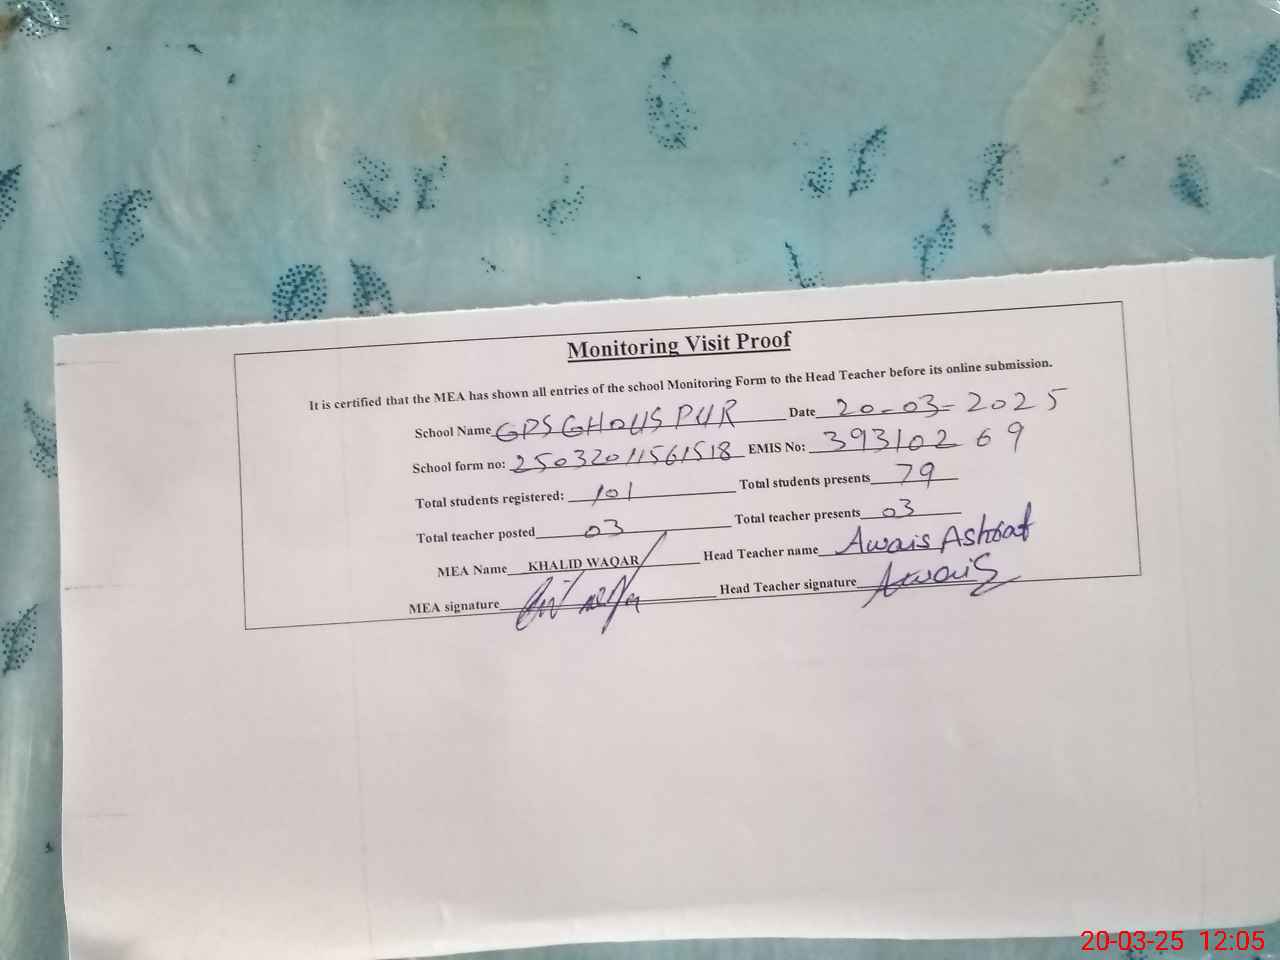 Monitoring Visit Proof
It is certified that the MEA has shown all entries of the school Monitoring Form to the Head Teacher before its online submission.
School Name GPS GHOUS PUR Date 20-03-2025
School form no: 25032011561518 EMIS No: 39310269
Total students registered: 101 Total students presents 79
Total teacher posted 03 Total teacher presents 03
MEA Name KHALID WAQAR Head Teacher name Awais Ashraf
MEA signature Head Teacher signature Awais
20-03-25 12:05